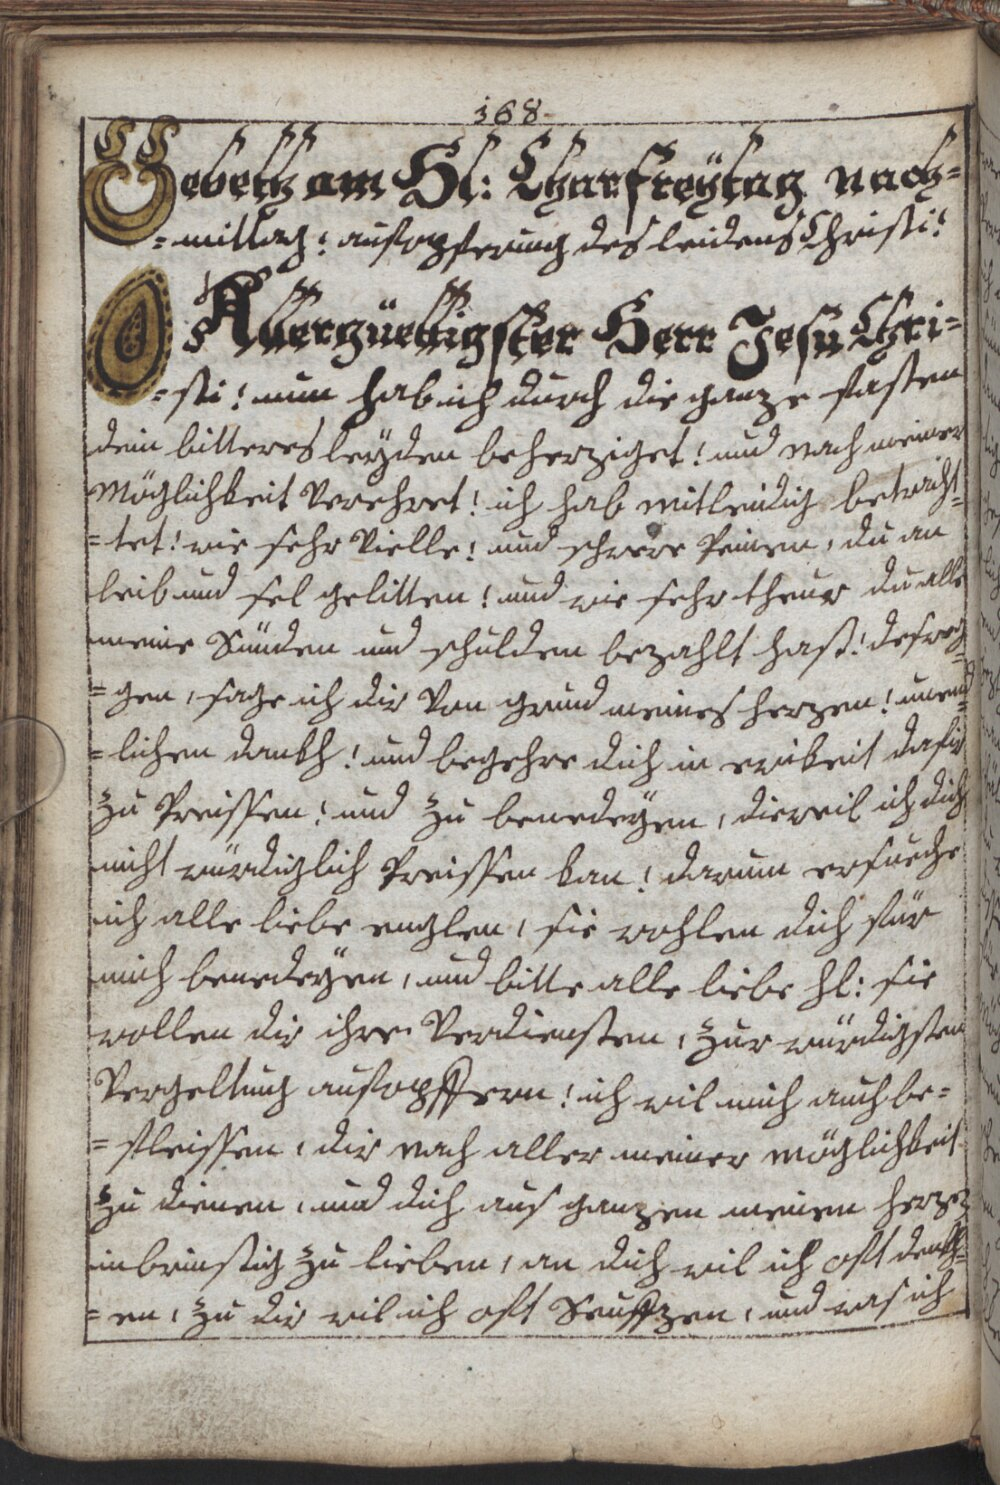 168.
Gebett am Hl: Charfreÿtag nach=
=mittag! aufopferung des leidens Christi!
O Allergüettigster Herr Jesu Chri=
=sti! nun hab ich durch die ganze fasten
dein bitteres leÿden beherziget! und nach meiner
Möglichkeit Verehret! ich hab mitleidig betracht=
=tet! wie sehr Vielle! und schwere Peinen, du an
leib und sel gelitten! und wie sehr theur du alle
meine Sünden und schulden bezahlt hast! deswe=
=gen, sage ich dir Von grund meines herzen! unend=
=lichen dankh! und begehre dich in ewikeit dafir
zu Preissen! und zu benedeÿen, dieweil ich dich
nicht würdiglich Preissen kan! darum ersueche
ich alle liebe englen, sie wohlen dich für
mich benedeÿen, und bitte alle liebe hl: sie
wollen dir ihre Verdiensten, zur würdigsten
Vergeltung aufopffern! ich wil mich auch be=
=fleissen, dir nach aller meiner möglichkeit
zu dienen, und dich aus ganzen meinen herzen
inbrinstig zu lieben, an dich wil ich oft denkh=
=en, zu dir wil ich oft Seuffzen, und was ich